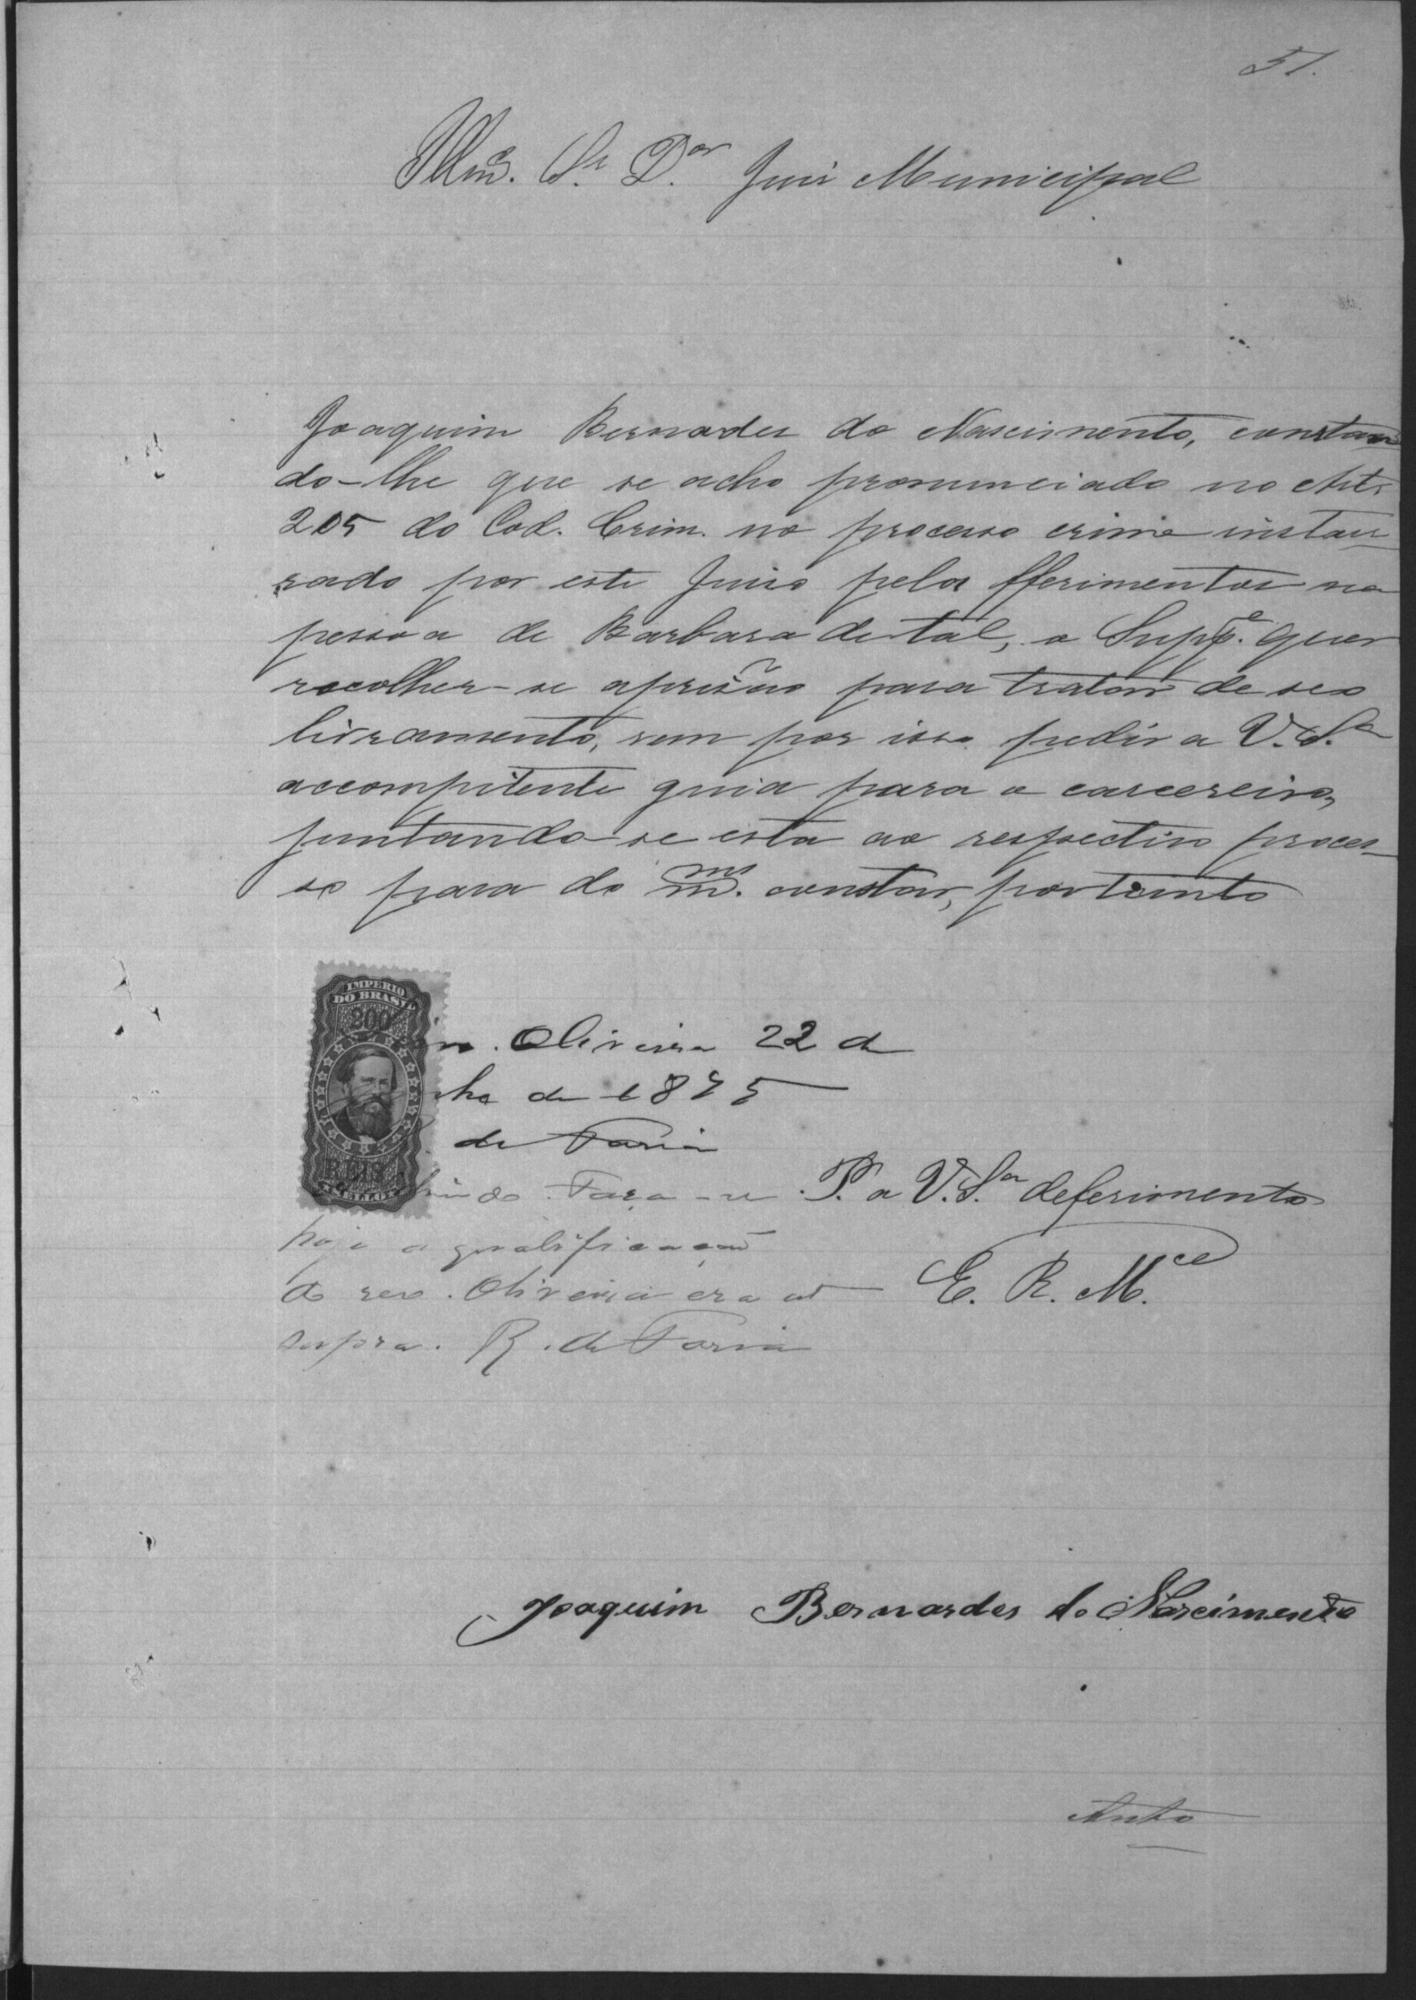 51.
Illmo. Sr. Dor. Juis Municipal
Joaquim Bernardes do Nascimento, constan
do-lhe que se acha pronunciado no Art.
205 do Cod. Crim. no processo crime instau
rado por este Juiso pelos fferimentos na
pessoa de Barbara de tal, o Suppe. quer
recolher-se aprisão para tratar de seo
livramento, vem por isso pedir a V. Sa
accompetente guia para o carcereiro,
juntando-se esta ao respectivo proces-
so para do mmo. constar, portanto
IMPERIO
DO BRASIL
200
REIS
Oliveira 22 de
nho de 1875
de Faria
Faça-se
hoje a qualificação
do reo. Oliveira era ut
supra. R. de Faria
P. a V. Sa deferimento
E. R. Mce
Joaquim Bernardes do Nascimento